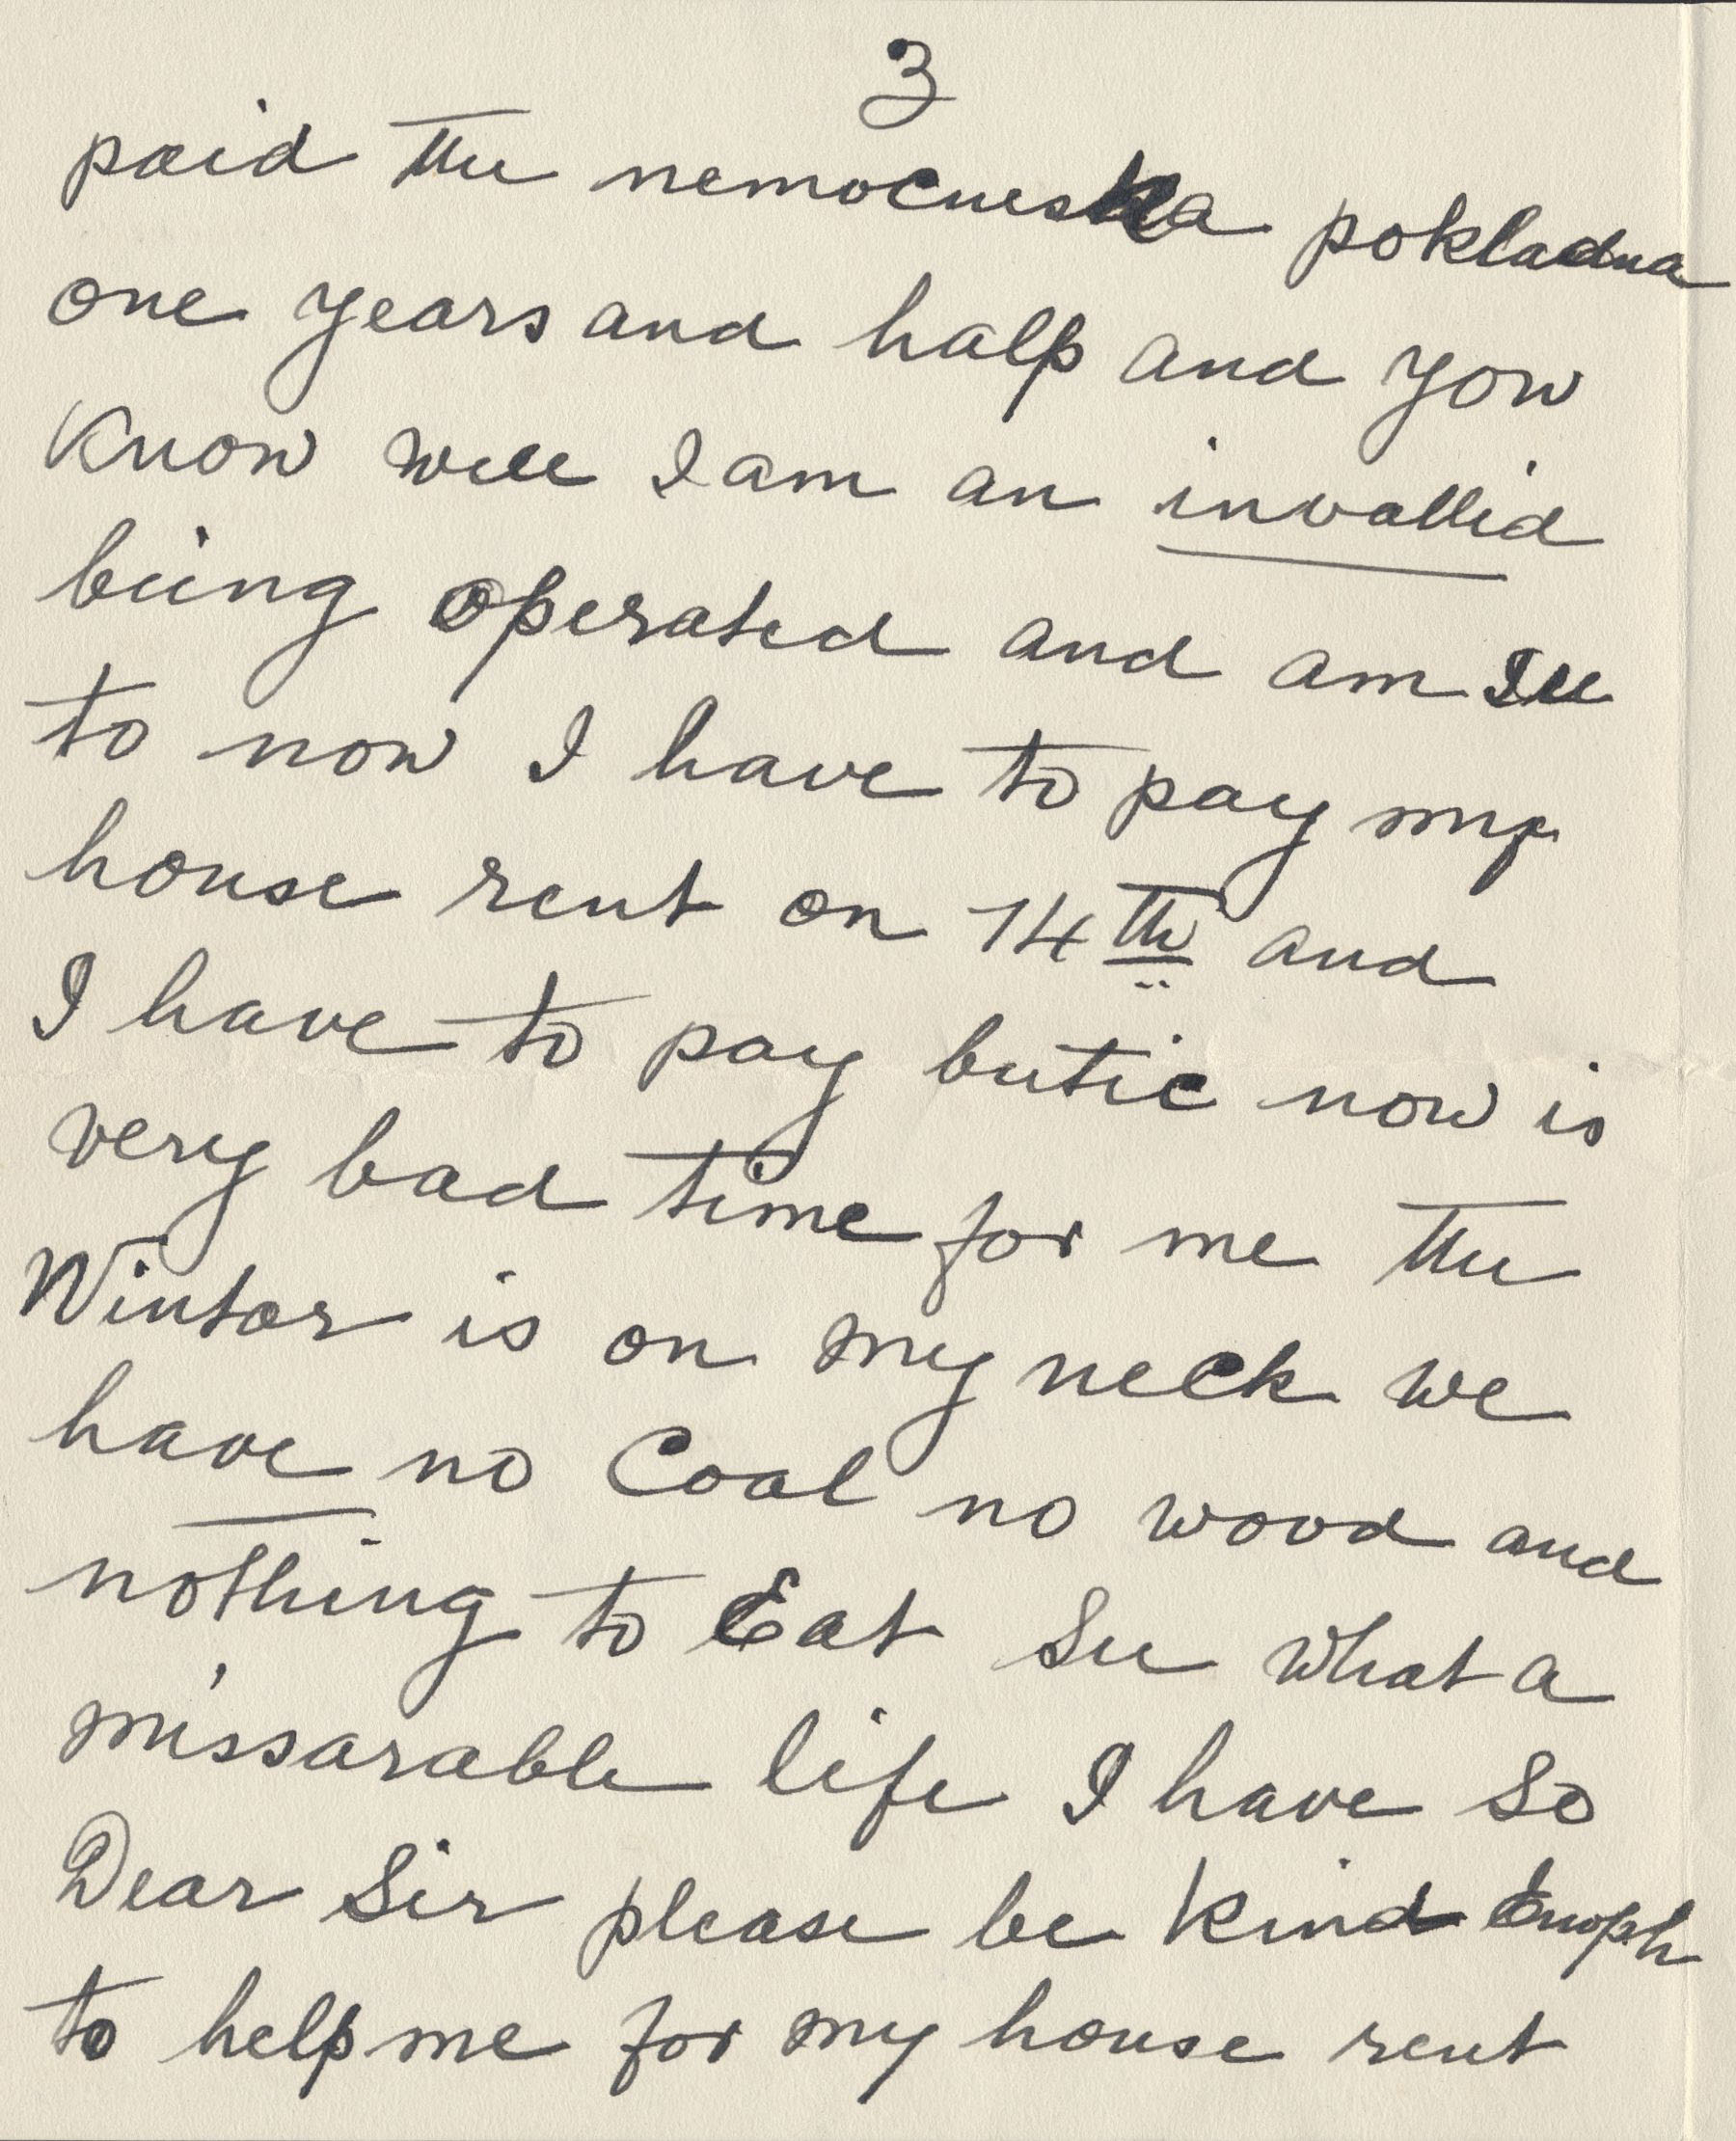 3
paid the nemocneska pokladna
one years and half and you
know well I am an invallid
being operated and am Ill
to now I have to pay my
house rent on 14th and
I have to pay butic now is
very bad time for me the
Wintar is on my neck we
have no Coal no wood and
nothing to Eat See what a
missarable life I have So
Dear Sir please be Kind Enoph
to help me for my house rent